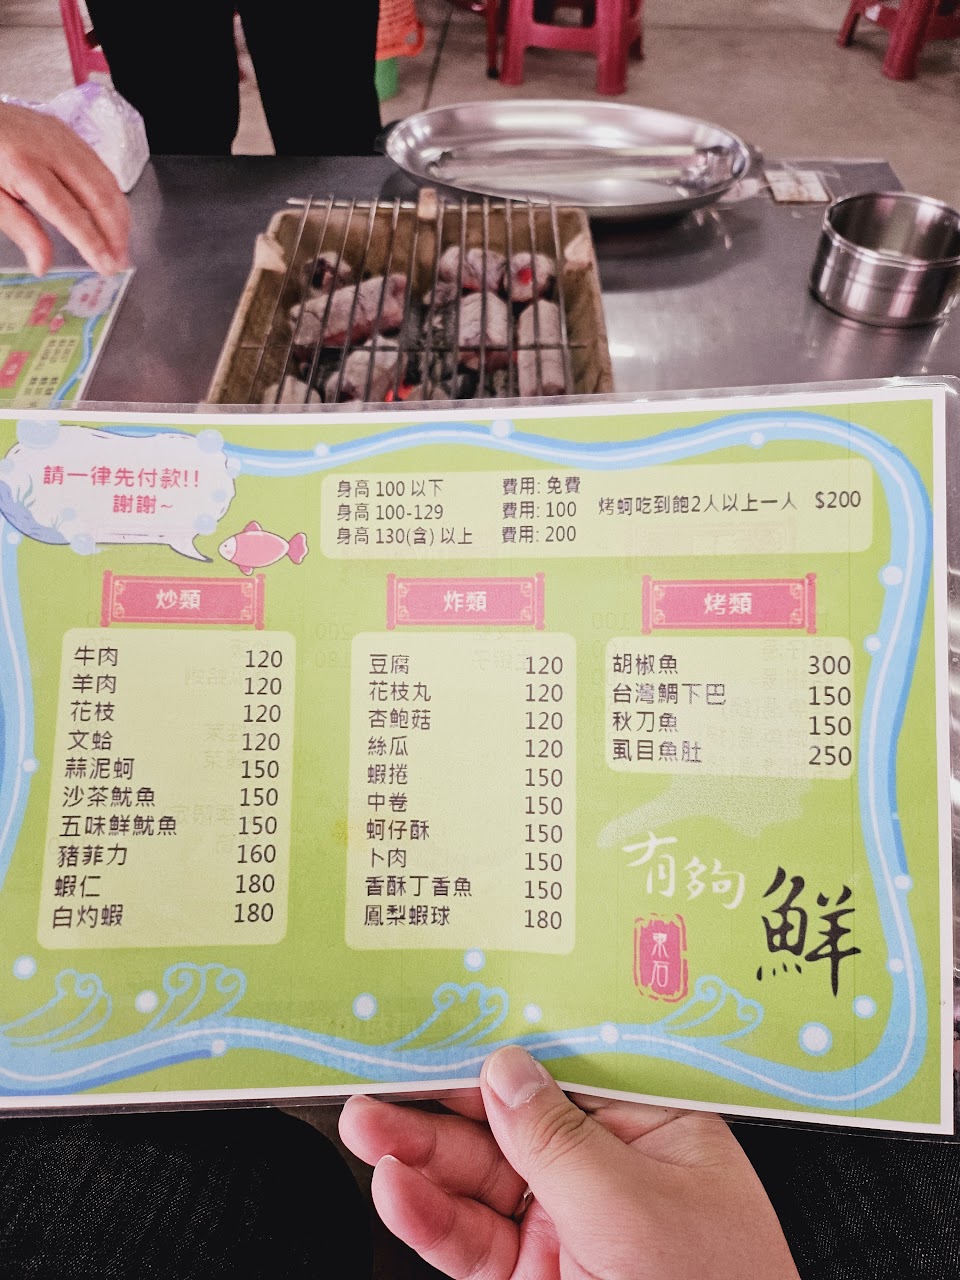 請一律先付款!!
謝謝~
身高 100 以下 費用: 免費
身高 100-129 費用: 100
身高 130(含) 以上 費用: 200
烤蚵吃到飽2人以上一人 $200
炒類
牛肉 120
羊肉 120
花枝 120
文蛤 120
蒜泥蚵 150
沙茶魷魚 150
五味鮮魷魚 150
豬菲力 160
蝦仁 180
白灼蝦 180
炸類
豆腐 120
花枝丸 120
杏鮑菇 120
絲瓜 120
蝦捲 150
中卷 150
蚵仔酥 150
卜肉 150
香酥丁香魚 150
鳳梨蝦球 180
烤類
胡椒魚 300
台灣鯛下巴 150
秋刀魚 150
虱目魚肚 250
有夠
鮮
東石